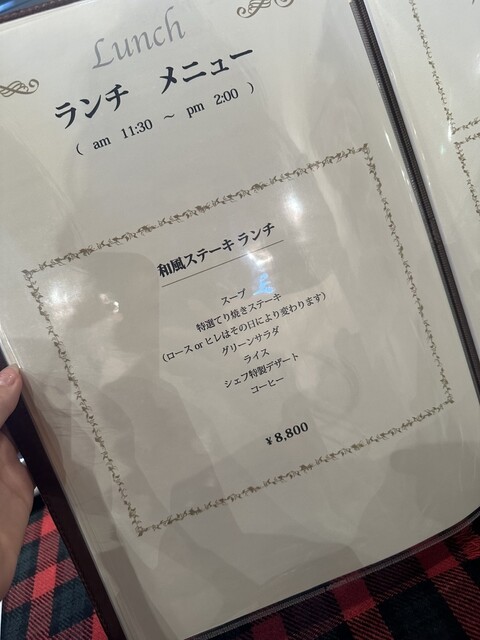 Lunch
ランチ メニュー
( am 11:30 ～ pm 2:00 )
和風ステーキ ランチ
スープ
特選てり焼きステーキ
(ロース or ヒレはその日により変わります)
グリーンサラダ
ライス
シェフ特製デザート
コーヒー
¥8,800